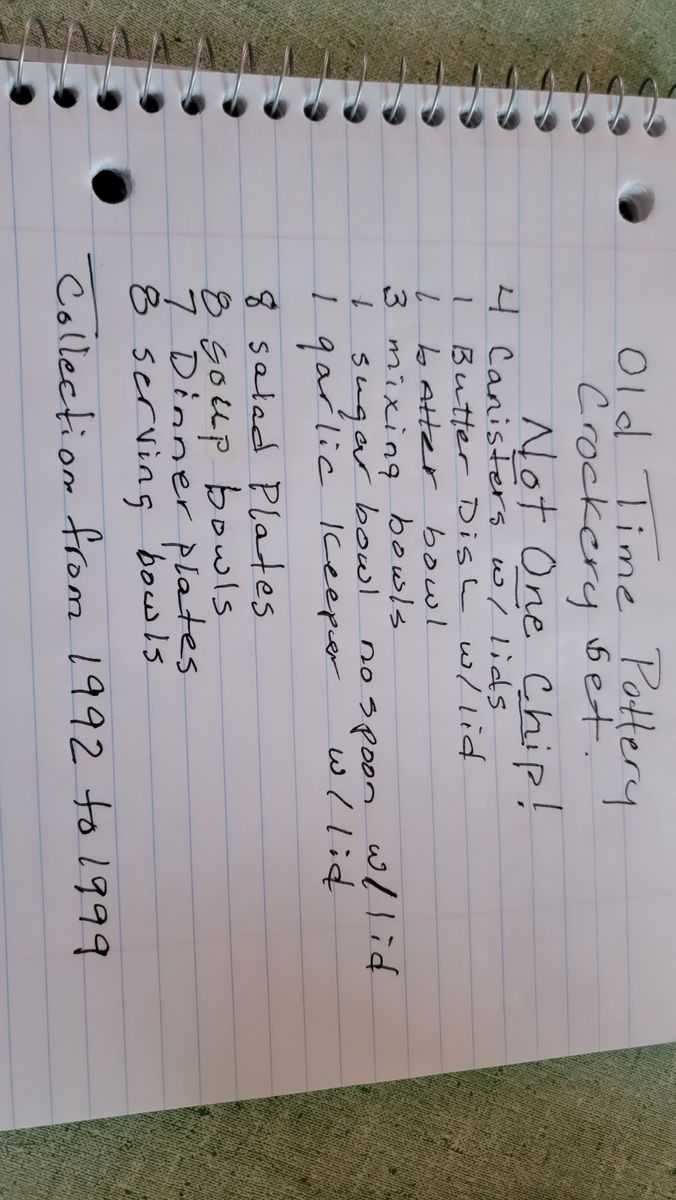 Old Time Pottery
Crockery Set.
Not One Chip!
4 Canisters w/lids
1 Butter Dish w/lid
1 batter bowl
3 mixing bowls
1 sugar bowl no spoon w/lid
1 garlic keeper w/lid
8 salad Plates
8 soup bowls
7 Dinner plates
8 serving bowls
Collection from 1992 to 1999